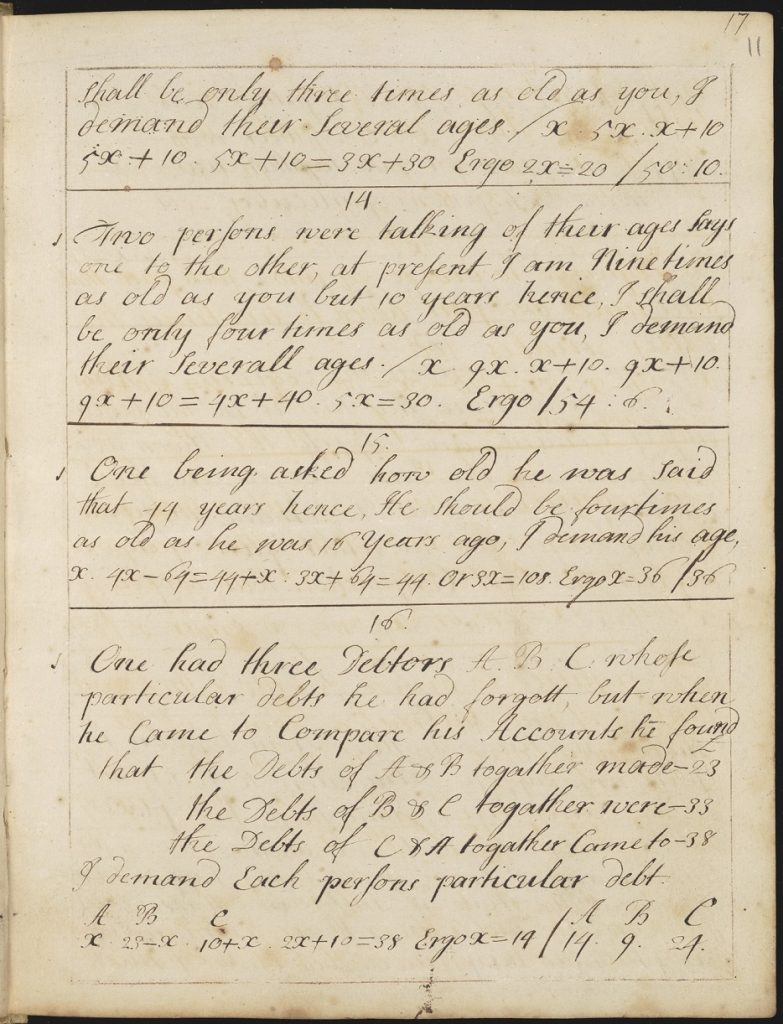 17
11
shall be only three times as old as you, I
demand their several ages. / x . 5x . x+10
5x+10 . 5x+10=3x+30 Ergo 2x=20 /50:10.
14.
Two persons were talking of their ages says
one to the other, at present I am Nine times
as old as you but 10 years hence, I shall
be only four times as old as you, I demand
their severall ages. / x 9x . x+10 . 9x+10.
9x+10=4x+40 . 5x=30 . Ergo /54:6.
15.
One being asked how old he was said
that 14 years hence, He should be four times
as old as he was 16 Years ago, I demand his age,
x . 4x-64=44+x : 3x+64=44. Or 3x=108. Ergo x=36 /36
16.
One had three Debtors A. B. C. whose
particular debts he had forgott, but when
he Came to Compare his Accounts he found
£
that the Debts of A & B togather made-23
the Debts of B & C togather were-33
the Debts of C & A togather Came to-38
I demand Each persons particular debt.
A B C / A B C
x . 23-x . 10+x . 2x+10=38 Ergo x=14 / 14. 9. 24.